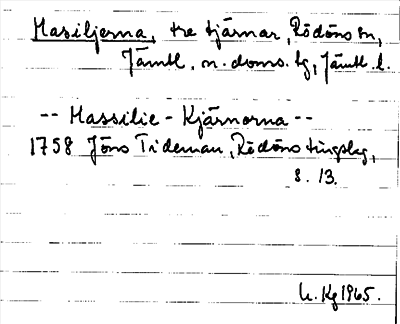 Masiljerna, tre tjärnar, Rödöns tn,
Jämtl. n. doms. tg, Jämtl. l.
-- Massilie - Kjärnorna --
1758 Jöns Tideman, Rödöns tingslag,
s. 13.
Kg 1965.